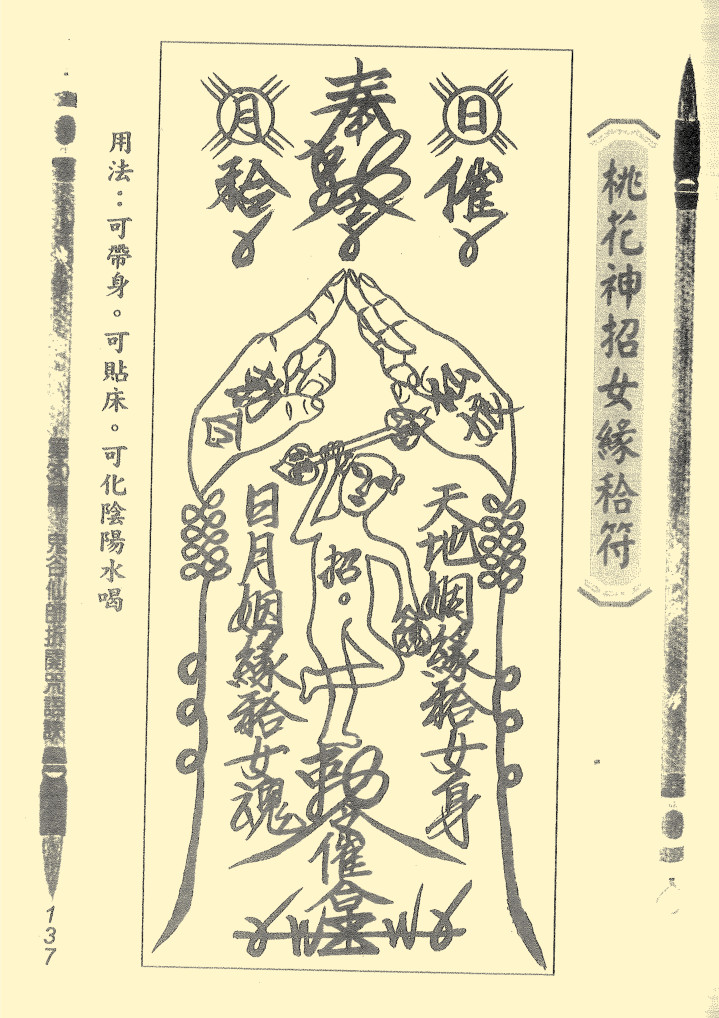 桃花神招女緣秴符
日
催
奉
勅令
月
秴
天地姻緣秴女身
招
日月姻緣秴女魂
勅令催合
用法：可帶身。可貼床。可化陰陽水喝
鬼谷仙師
137